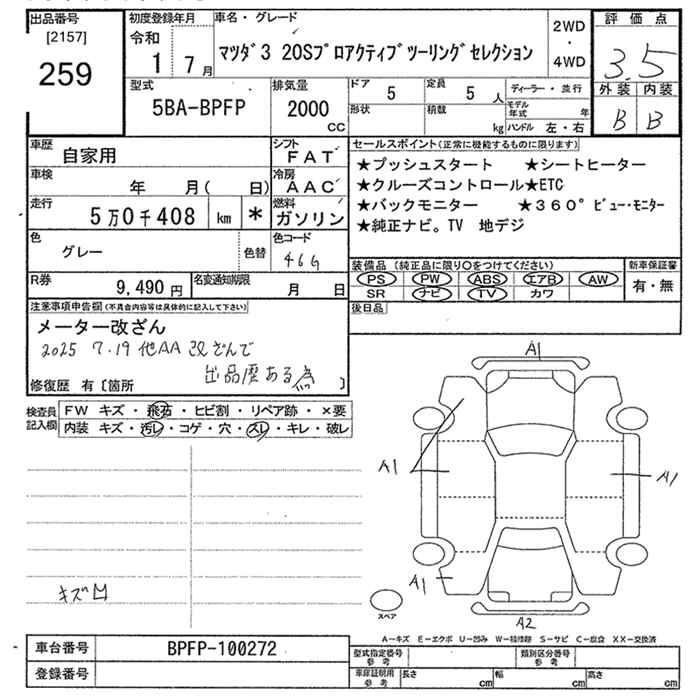 出品番号
[2157]
259
初度登録年月
令和
1 7月
車名・グレード
マツダ3 20Sプロアクティブツーリングセレクション
2WD
・
4WD
評価点
3.5
外装 内装
B B
型式
5BA-BPFP
排気量
2000
CC
ドア 5
定員 5人
形状
積載 kg
ディーラー・並行
モデル年式 年
ハンドル 左・右
車歴
自家用
シフト
FAT
車検
年 月( 日)
冷房
AAC
走行
5万0千408 km *
燃料
ガソリン
色
グレー
色替
色コード
46G
R券
9,490円
名変通知期限
月 日
セールスポイント(正常に機能するものに限ります)
★プッシュスタート ★シートヒーター
★クルーズコントロール★ETC
★バックモニター ★360°ビュー・モニター
★純正ナビ。TV 地デジ
装備品(純正品に限り○をつけてください)
PS PW ABS エアB AW
SR ナビ TV カワ
新車保証書
有・無
後日品
注意事項申告欄(不具合内容等は具体的に記入して下さい)
メーター改ざん
2025 7.19 他AA 改ざんで
出品歴ある為
修復歴 有〔箇所 〕
検査員記入欄
FW キズ・飛石・ヒビ割・リペア跡・×要
内装 キズ・汚レ・コゲ・穴・スレ・キレ・破レ
キズ凹
A1
A1
A1
A1
A2
スペア
A-キズ E-エクボ U-凹み W-補修跡 S-サビ C-腐食 XX-交換済
車台番号
BPFP-100272
登録番号
型式指定番号
参考
類別区分番号
参考
車庫証明用
参考
長さ cm
幅 cm
高さ cm